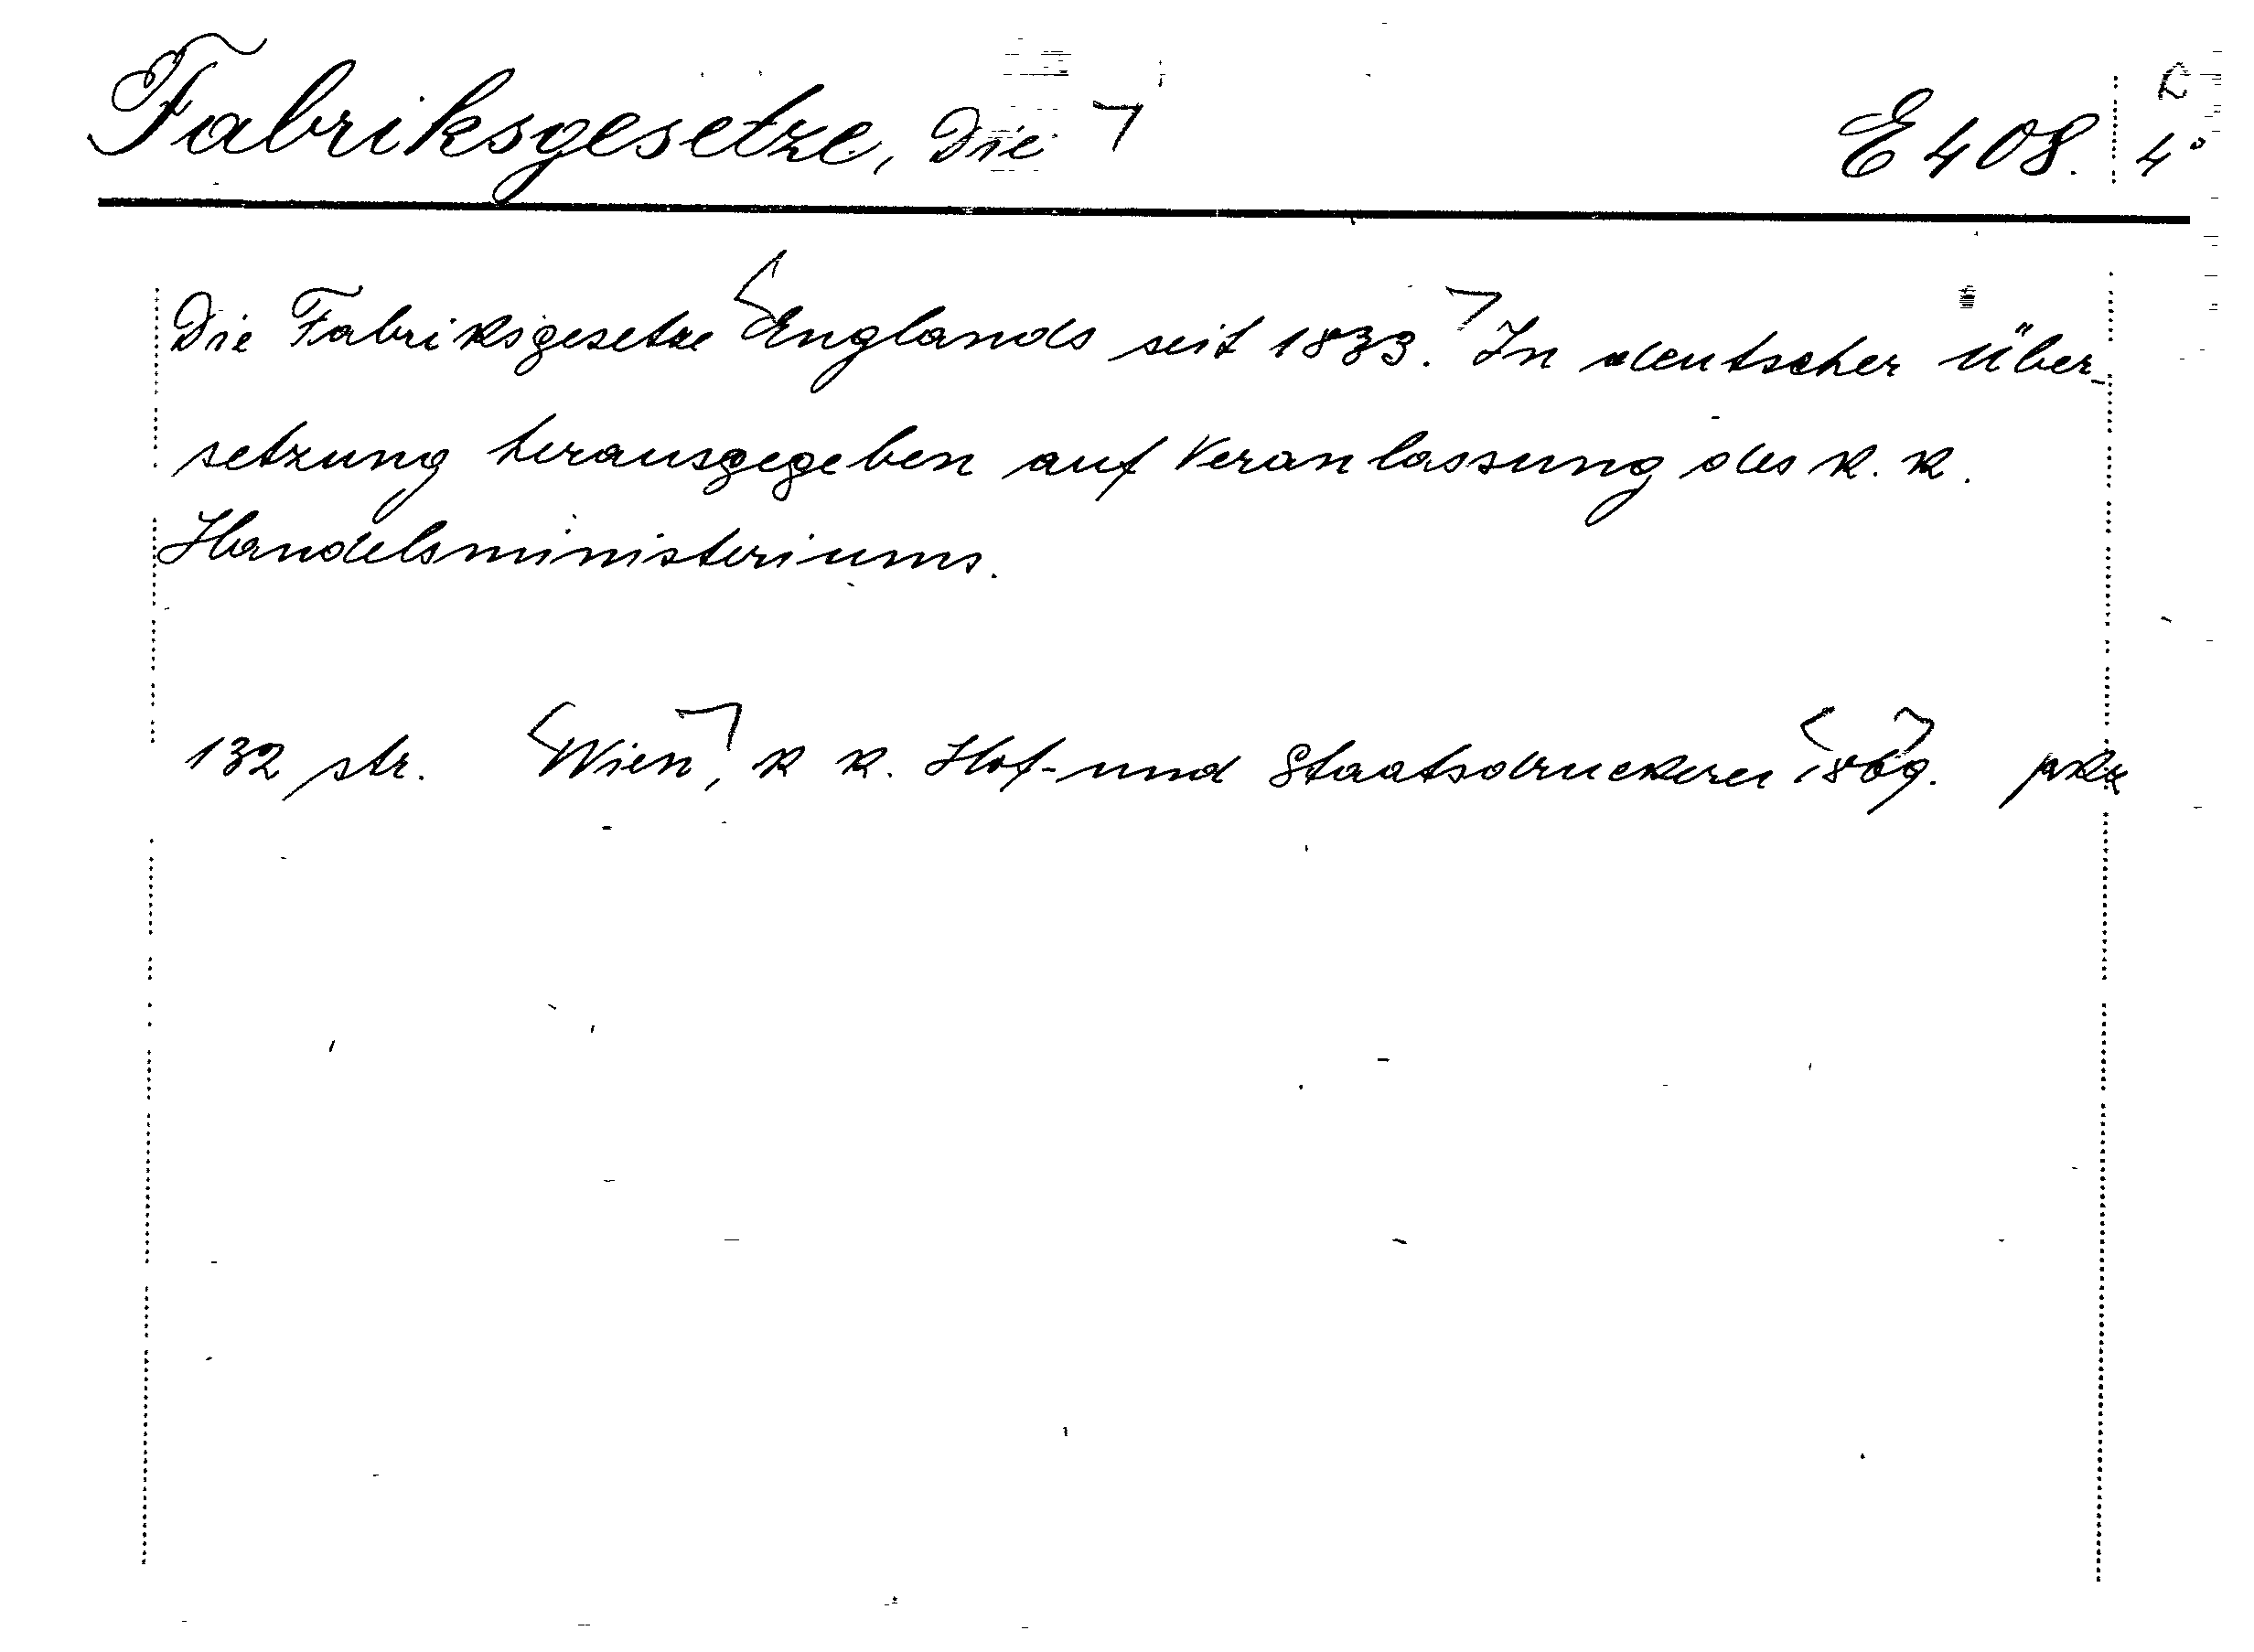 Fabriksgesetze, Die E 408. 4°
Die Fabriksgesetze Englands seit 1833. In deutscher Über-
setzung herausgegeben auf Veranlassung des k. k.
Handelsministeriums.
132 str. Wien, k k. Hof- und Staatsdruckerei 1869.